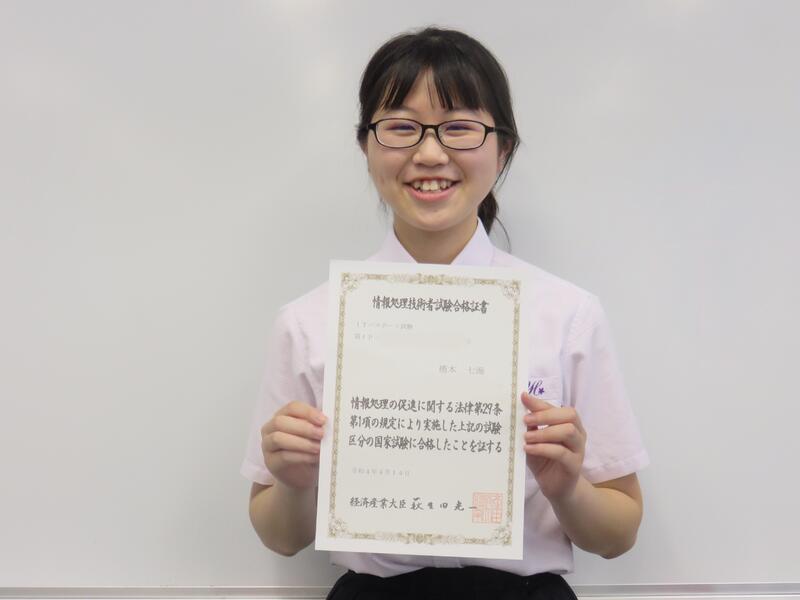 情報処理技術者試験合格証書
ITパスポート試験
第IP-
七海
情報処理の促進に関する法律第29条
第1項の規定により実施した上記の試験
区分の国家試験に合格したことを証する
令和4年4月14日
経済産業大臣 萩生田光一
H